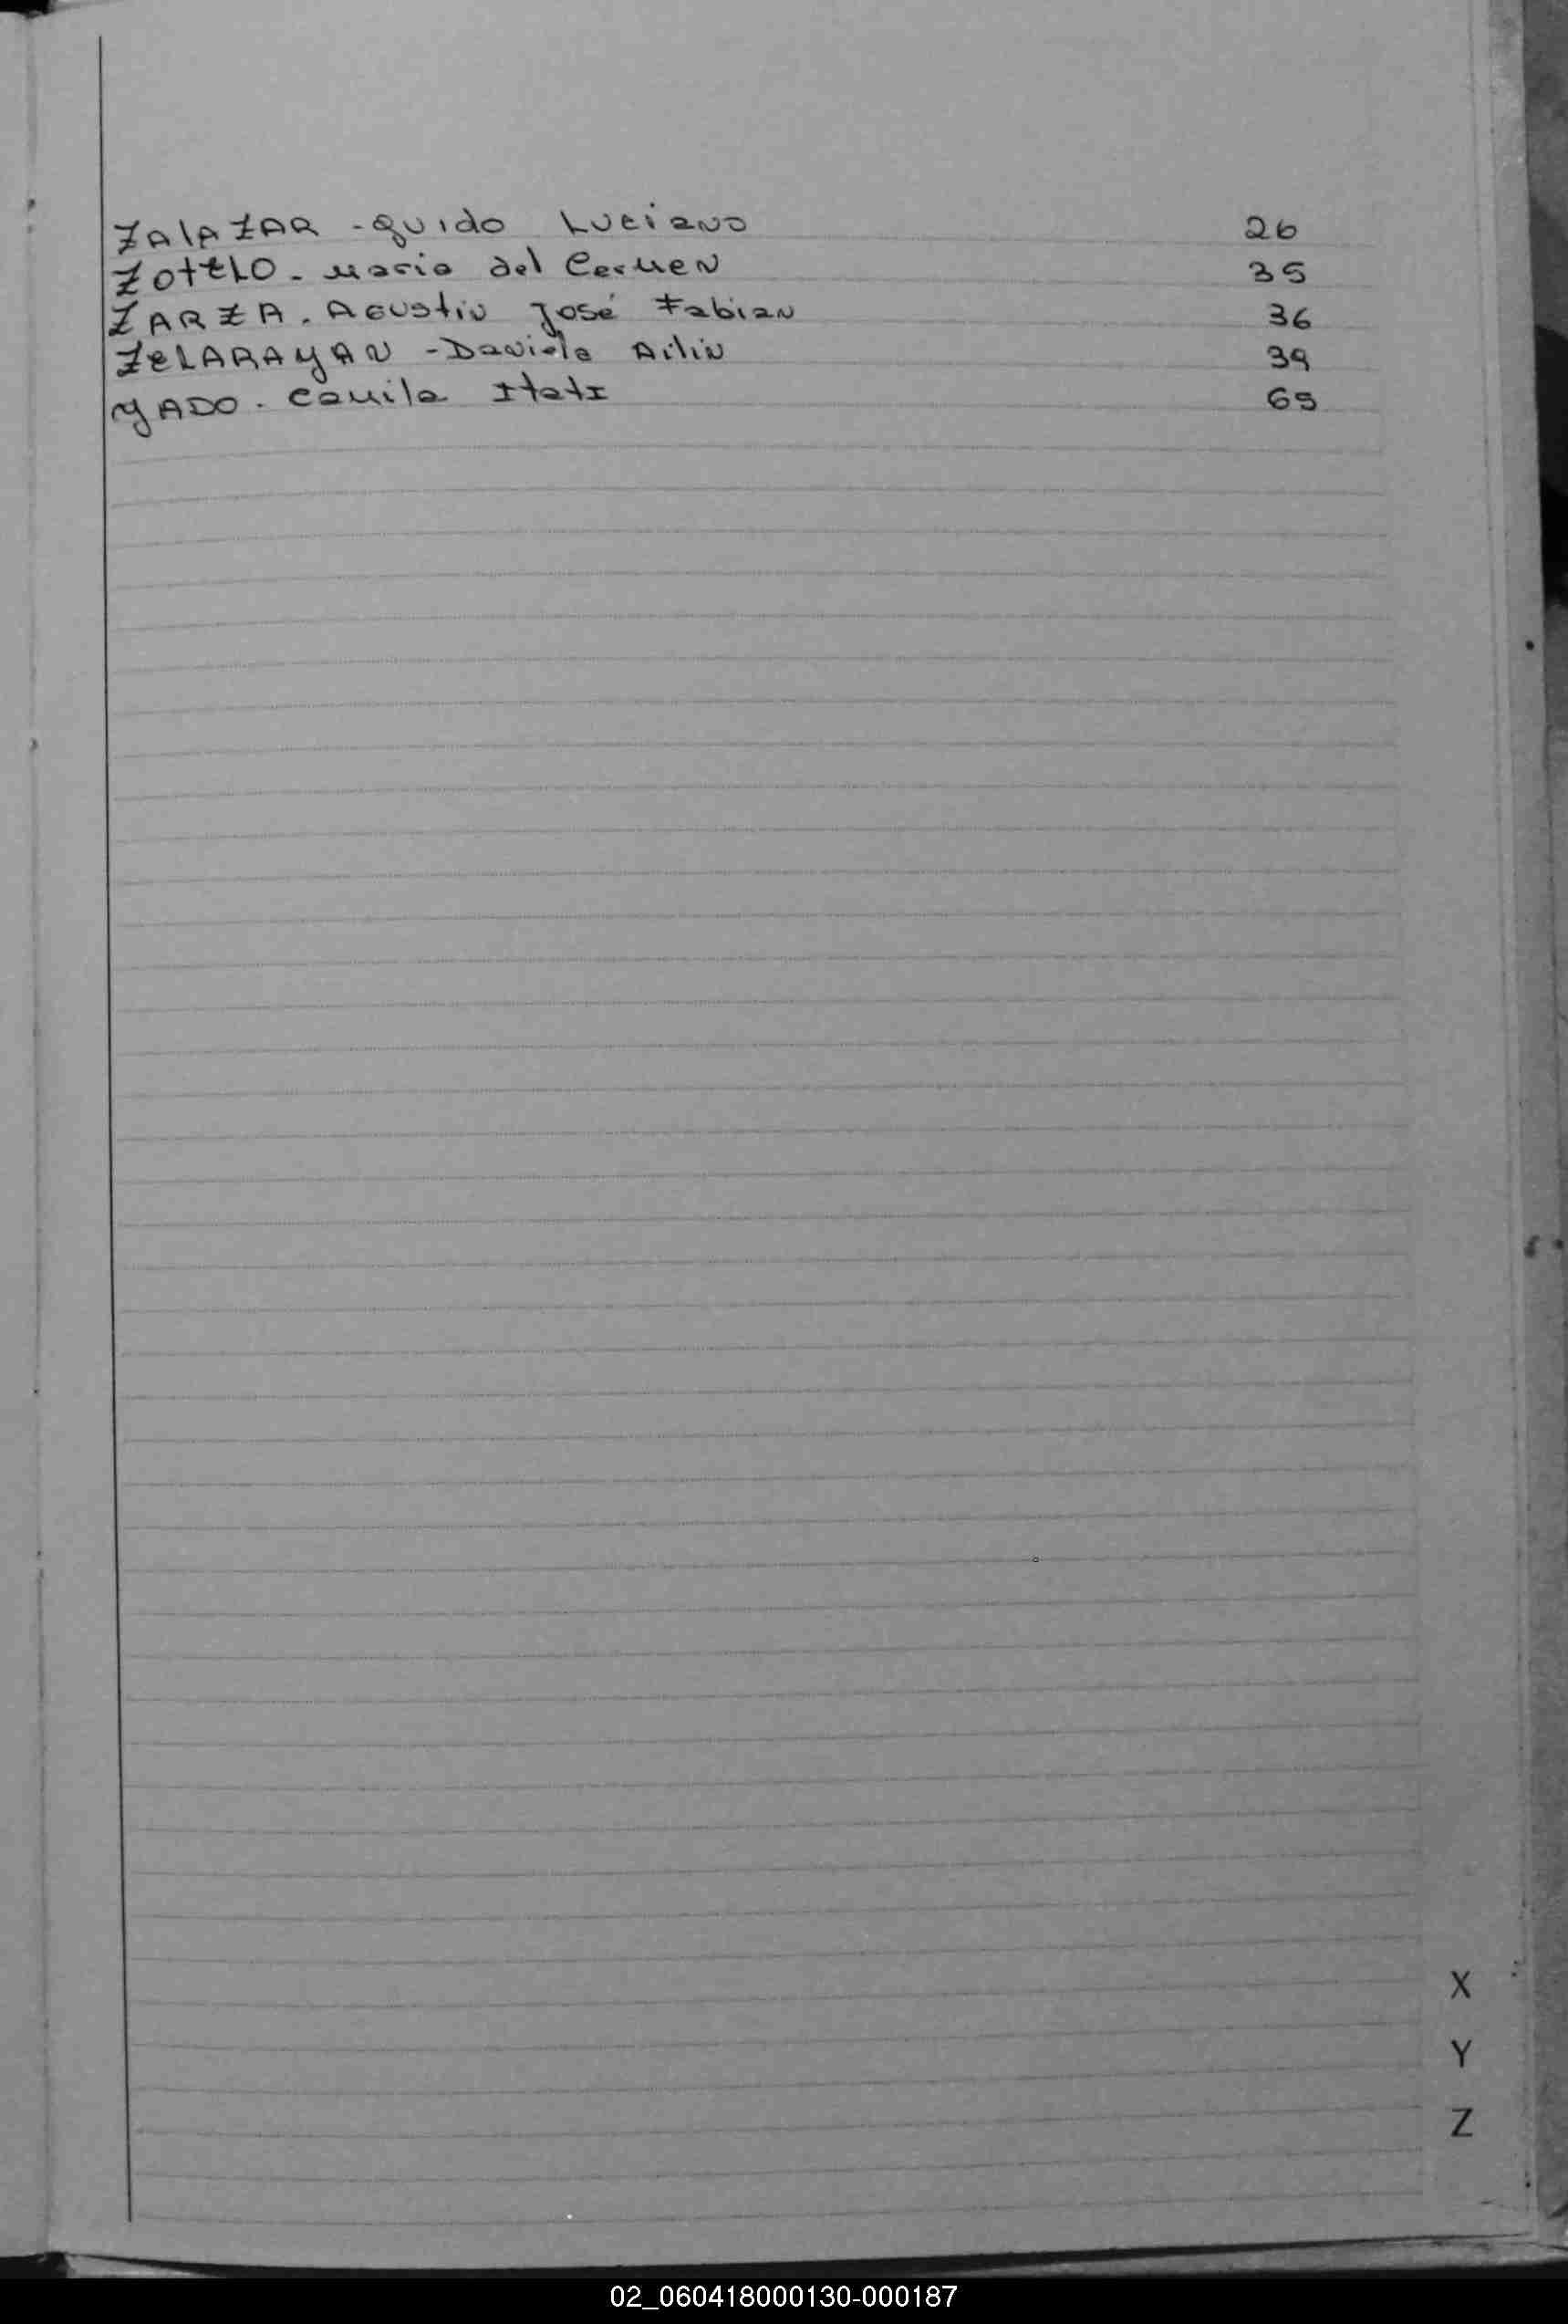 ZAlAZAR - Guido Luciano 26
ZOttLO - Maria del Carmen 35
ZARZA. Agustin José Fabian 36
ZeLARAYAN - Daniela Ailin 39
YADO. Camila Itati 65
X
Y
Z
02_060418000130-000187